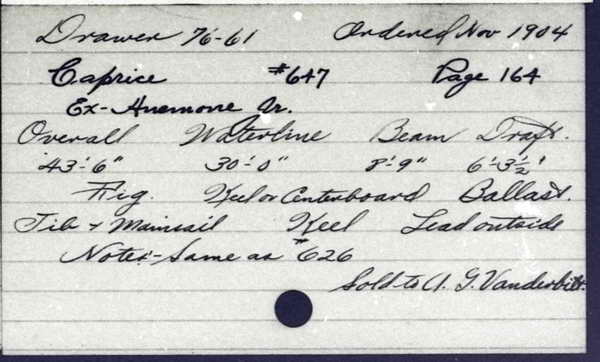 Drawer 76-61 Ordered Nov 1904
Caprice #647 Page 164
Ex-Anemone Jr.
Overall Waterline Beam Draft.
43'-6" 30'-0" 8'-9" 6'-3½"
Rig. Keel or Centerboard Ballast.
Jib & Mainsail Keel Lead outside
Note:- Same as #626
Sold to A. G. Vanderbilt.